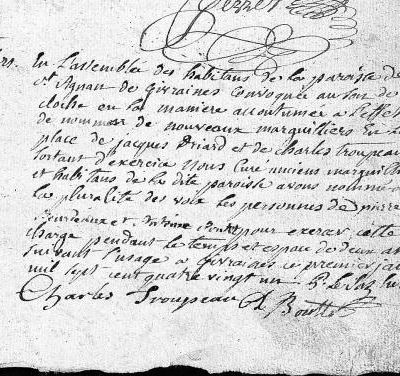 En Lassemblée des habitans de la paroisse de
st Agnan de Givraines Convoquée au son de
cloche en la maniere accoutumée a l'effet
de nommer de nouveaux marguilliers en
place de jacques Briard et de charles troupeau
sortant d'exercice Nous Curé anciens marguill
et habitans de la dite paroisse avons nommé a
la pluralité des voix les personnes de pierre
et pour exercer cette
charge pendant le temps et espace de deux an
suivant l'usage a Givraines ce premier jan
mil sept cent quatre vingt un
Charles Troupeau